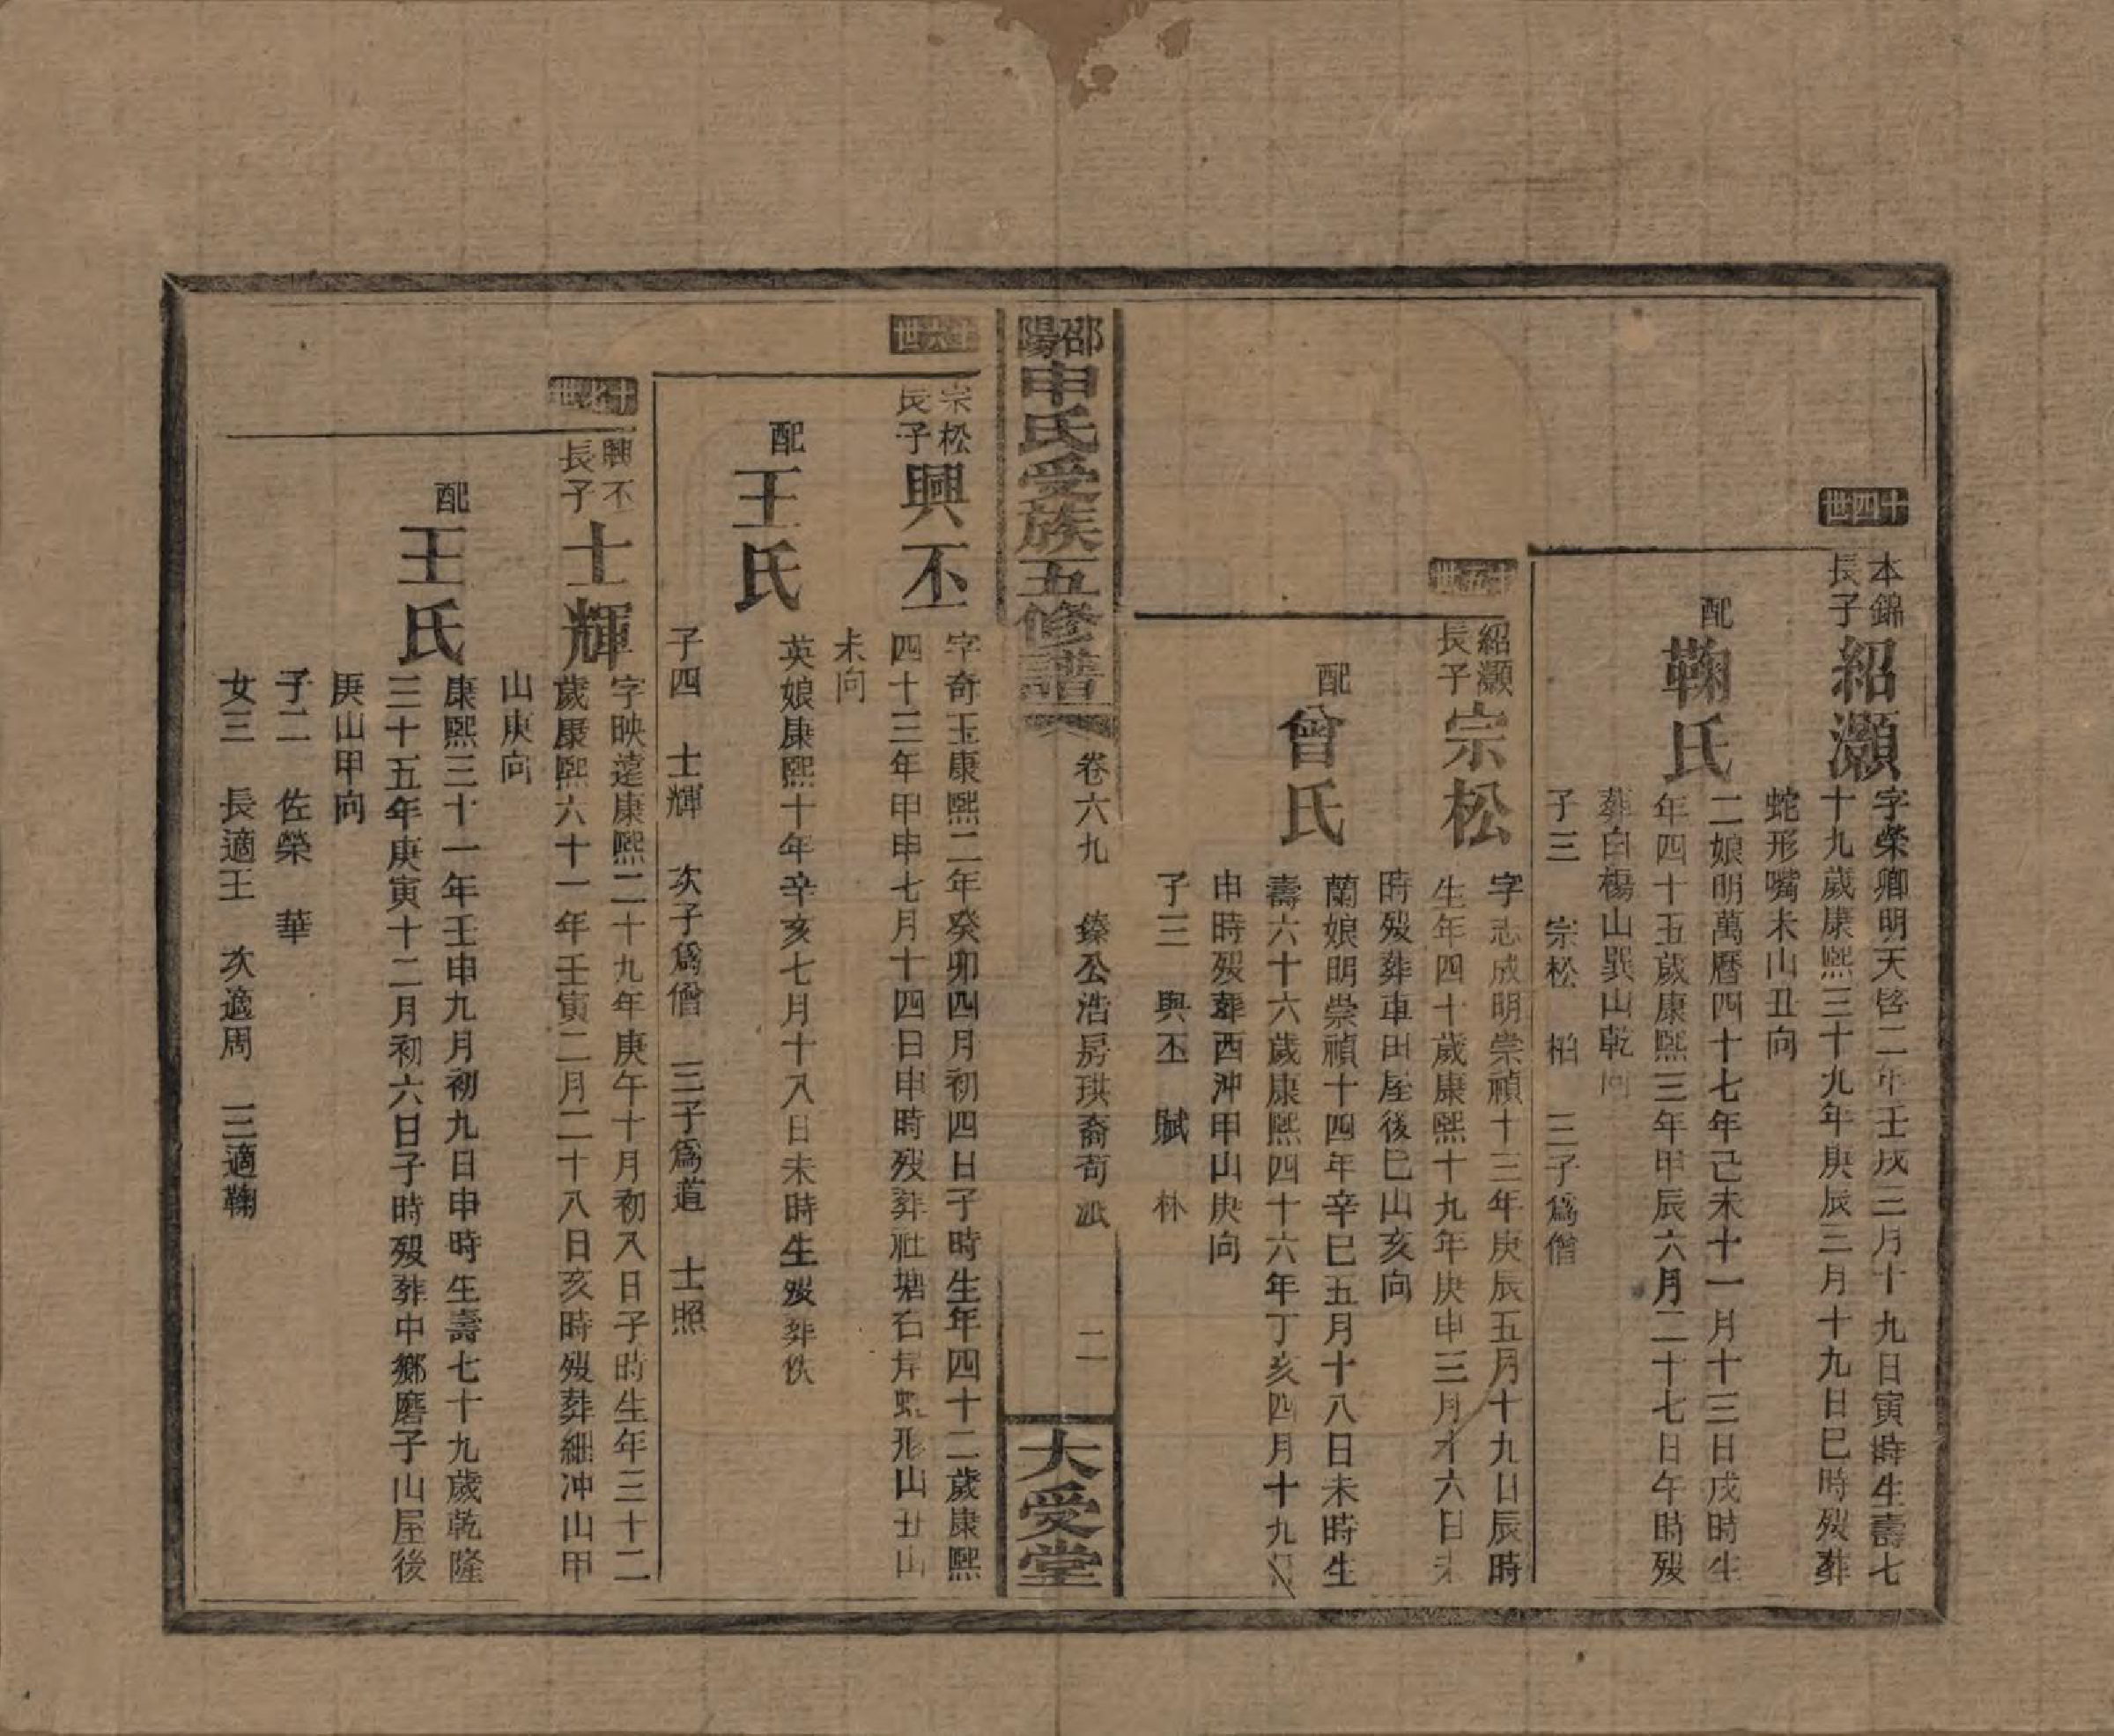 十四世
本錦長子
紹灝
字榮卿明天啓二年壬戌三月十九日寅時生壽七
十九歲康熙三十九年庚辰三月十九日巳時歿葬
蛇形嘴未山丑向
配
鞠氏
二娘明萬曆四十七年己未十一月十三日戌時生
年四十五歲康熙三年甲辰六月二十七日午時歿
葬白楊山巽山乾向
子三 宗松 柏 三子爲僧
十五世
紹灝長子
宗松
字志成明崇禎十三年庚辰五月十九日辰時
生年四十歲康熙十九年庚申三月十六日未
時歿葬車田屋後巳山亥向
配
曾氏
蘭娘明崇禎十四年辛巳五月十八日未時生
壽六十六歲康熙四十六年丁亥四月十九日
申時歿葬西沖甲山庚向
子三 興丕 賦 林
邵陽申氏受族五修譜
卷六九 鎟公浩房珙裔苟派
二
大受堂
十六世
宗松長子
興丕
字奇玉康熙二年癸卯四月初四日子時生年四十二歲康熙
四十三年甲申七月十四日申時歿葬社塘石岸虵形山丑山
未向
配
王氏
英娘康熙十年辛亥七月十八日未時生歿葬佚
子四 士輝 次子爲僧 三子爲道 士照
十七世
興丕長子
士輝
字映遠康熙二十九年庚午十月初八日子時生年三十二
歲康熙六十一年壬寅二月二十八日亥時歿葬細冲山甲
山庚向
配
王氏
康熙三十一年壬申九月初九日申時生壽七十九歲乾隆
三十五年庚寅十二月初六日子時歿葬中鄉磨子山屋後
庚山甲向
子二 佐榮 華
女三 長適王 次適周 三適鞠